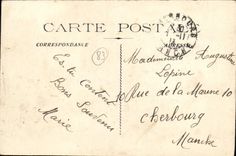 CARTE POSTALE
CORRESPONDANCE
83
Es tu Contente
Bons Souvenirs
Marie
Mademoiselle Augustine
Lepine
Rue de la Marine 10
Cherbourg
Manche